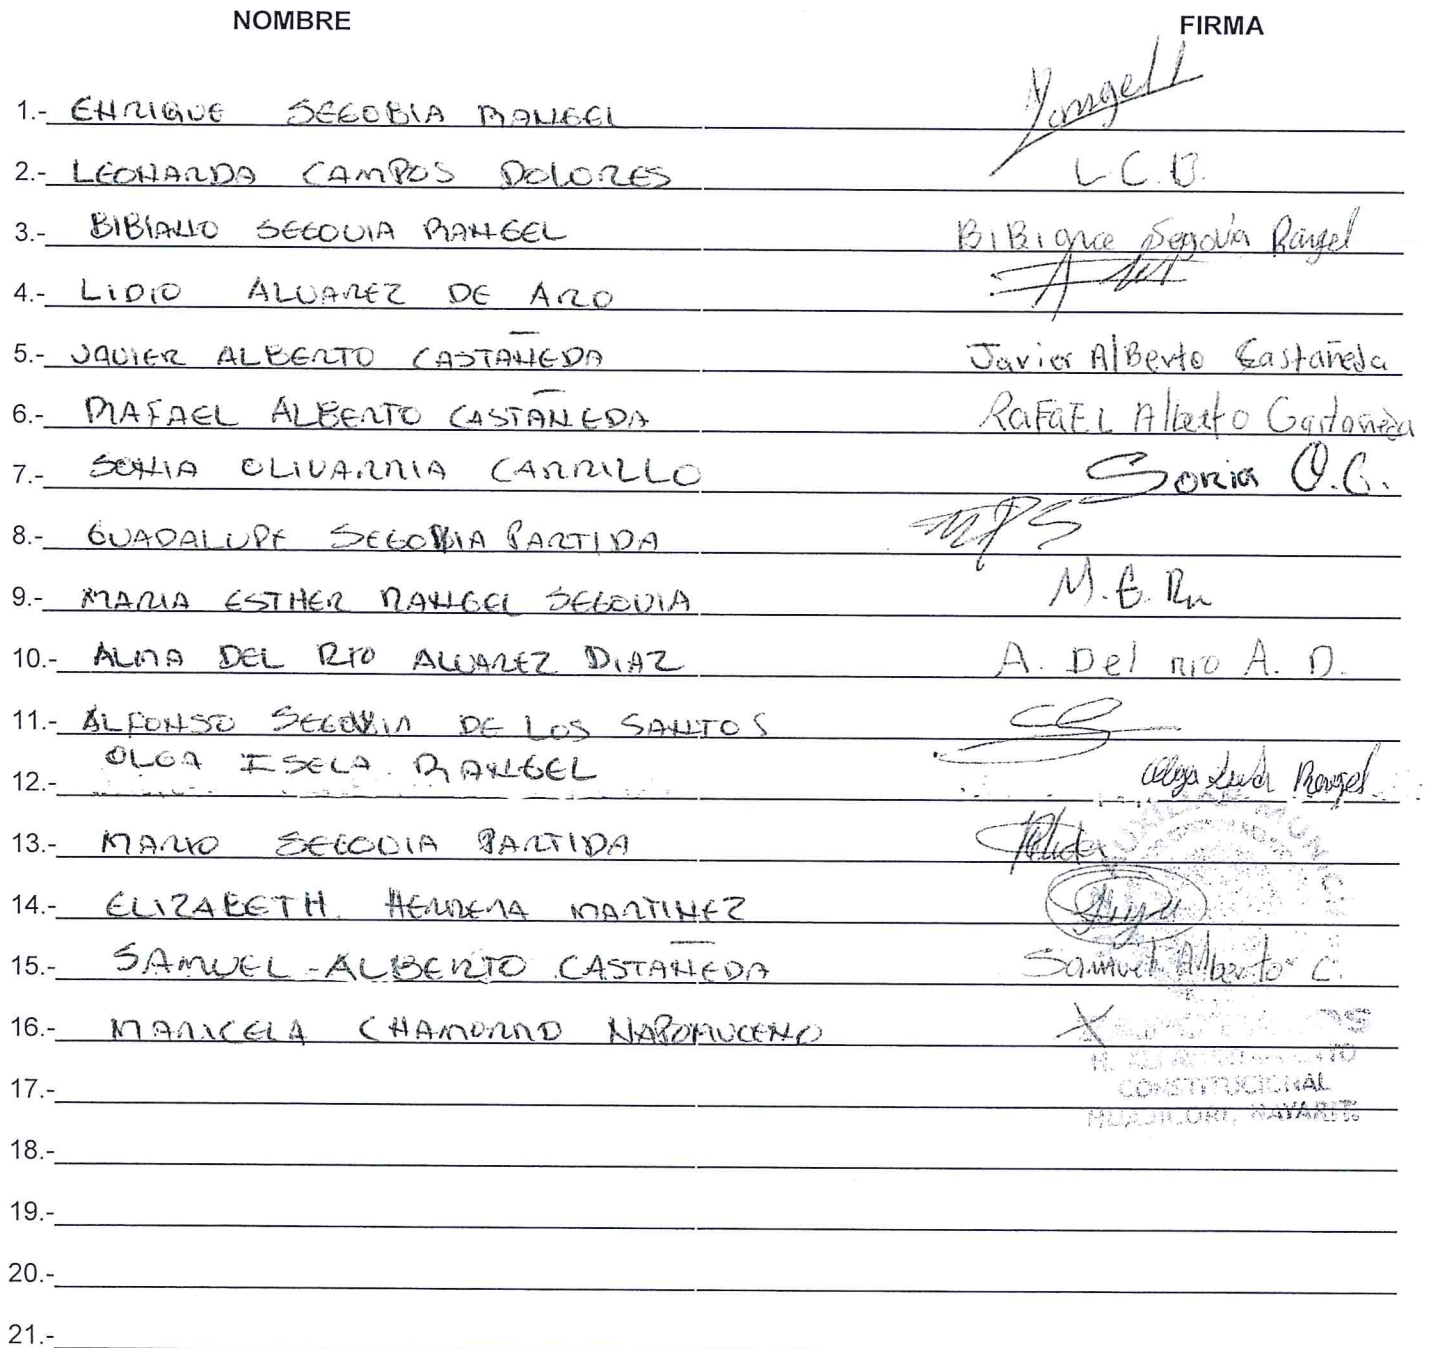 NOMBRE FIRMA
1.- ENRIQUE SEGOBIA RANGEL Rangel
2.- LEONARDA CAMPOS DOLORES L.C.D.
3.- BIBIANO SEGOVIA RANGEL BiBiano Segovia Rangel
4.- LIDIO ALVAREZ DE ARO
5.- JAVIER ALBERTO CASTAÑEDA Javier AlBerto Castañeda
6.- RAFAEL ALBERTO CASTAÑEDA RaFaEL Alberto Castañeda
7.- SONIA OLIVARRIA CARRILLO Sonia O.C.
8.- GUADALUPE SEGOVIA PARTIDA
9.- MARIA ESTHER RANGEL SEGOVIA M.E.
10.- ALMA DEL RIO ALVAREZ DIAZ A. Del rio A. D.
11.- ALFONSO SEGOVIA DE LOS SANTOS
12.- OLGA ISELA RANGEL Olga Rangel
13.- MARIO SEGOVIA PARTIDA
14.- ELIZABETH HERRERA MARTINEZ
15.- SAMUEL ALBERTO CASTAÑEDA Samuel Alberto C.
16.- MARICELA CHAMORRO NAPOMUCENO X
CONSTITUCIONAL
17.-
HUAJICORI, NAYARIT.
18.-
19.-
20.-
21.-